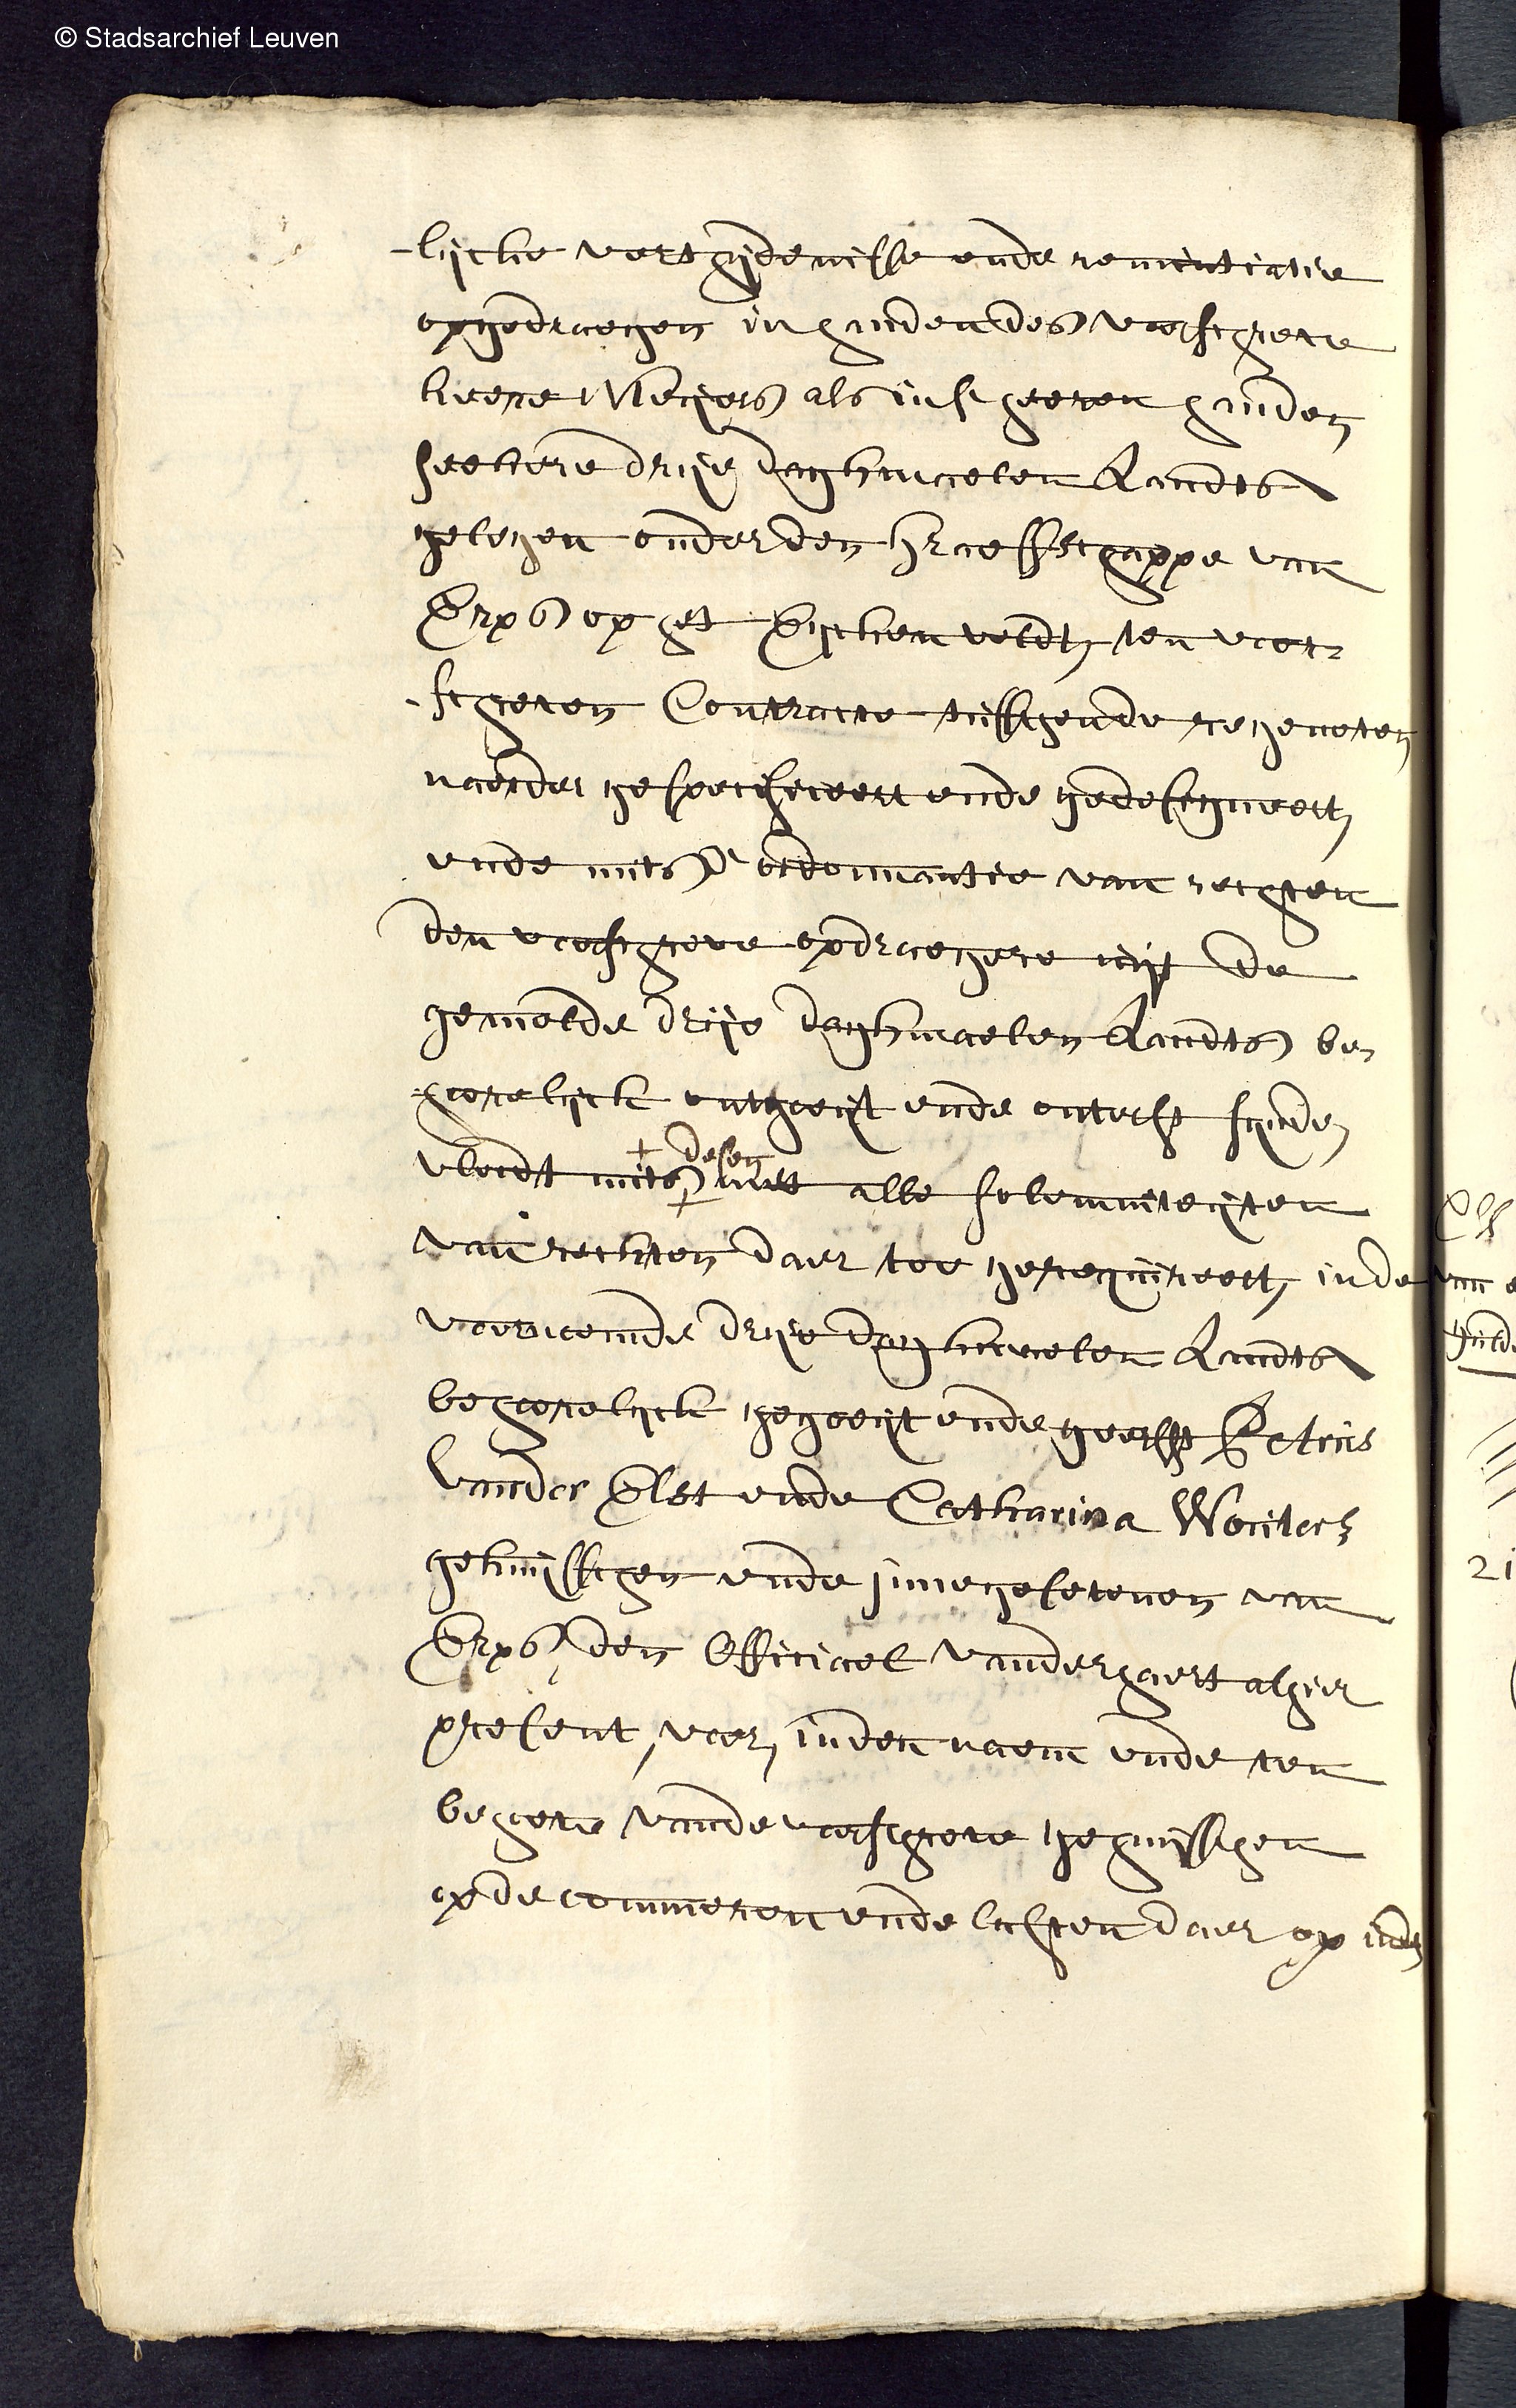 © Stadsarchief Leuven
-lijcke verthijdenisse ende renuntiatie
opgedraegen in handen des voorschreve
heere Meijers als in sheeren handen
seeckere drije daghmaelen Landts
gelegen onder den Graeffschappe van
Erps op het Eijcken veldt, ten voor-
-schreven Contracte tusschende regenoten
naerder gespecificeert ende gedesigneert,
ende mits d' ordonnantie van rechten
den voorschreve opdraegere uijt de
gemelde drije daghmaelen Landts be-
-hoorelijck onthoeijt ende onterft sijnde,
wordt mits + desen met alle solemniteijten
van rechten daer toe gerequireert, in de
voornoemde drije daghmaelen Landts
behoorelijck gegoeijt ende geerft Petrus
vander Elst ende Catharina Wouters
gehuijsschen ende innegesetenen van
Erps, den Officiael vanderhaert alhier
present, voor, inden naem ende ten
behoeve vande voorschreve gehuijsschen
op de commeren ende lasten daer op inde